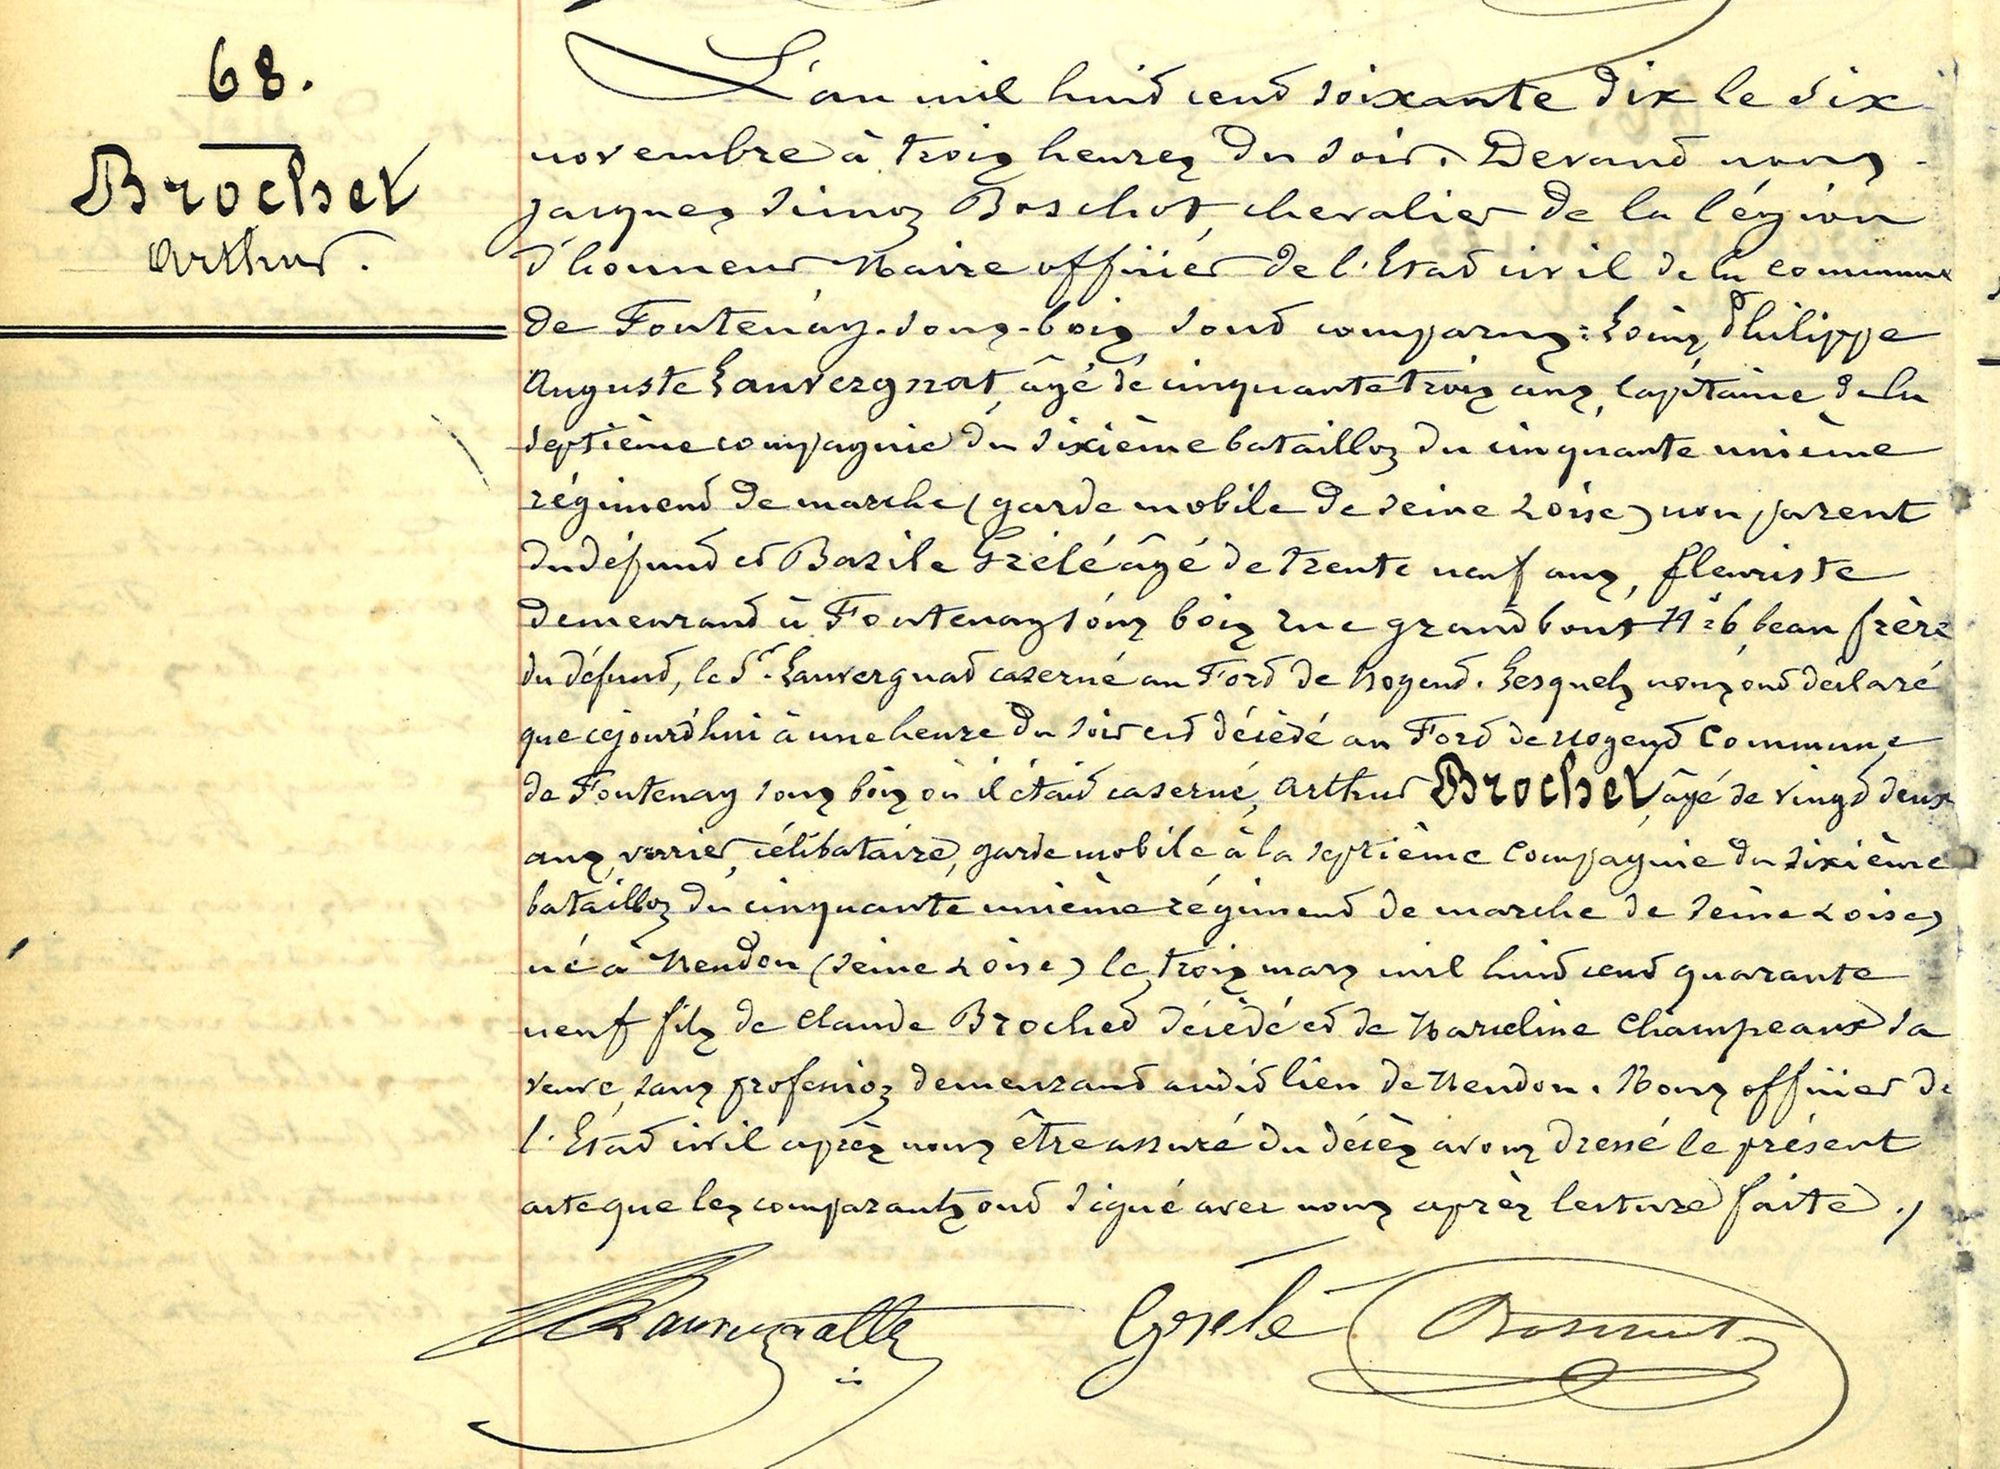 68.
Brochet
Arthur.
L'an mil huit cent soixante dix le six
novembre à trois heures du soir. Devant nous
Jacques Simon Boschot, chevalier de la légion
d'honneur, Maire officier de l'Etat civil de la commune
de Fontenay-sous-bois sont comparus : Louis Philippe
Auguste Lauvergnat, âgé de cinquante trois ans, Capitaine de la
septième compagnie du sixième bataillon du cinquante unième
régiment de marche (garde mobile de Seine & Oise) non parent
du défunt et Bazile Grélé âgé de trente neuf ans, fleuriste
demeurant à Fontenay sous bois rue grand bout N° 6, beau frère
du défunt, le Sr. Lauvergnat caserné au Fort de Nogent. Lesquels nous ont déclaré
que cejourd'hui à une heure du soir est décédé au Fort de Nogent Commune
de Fontenay sous bois où il était caserné, Arthur Brochet, âgé de vingt deux
ans, verrier, célibataire, garde mobile à la septième Compagnie du sixième
bataillon du cinquante unième régiment de marche de Seine & Oise,
né à Meudon (Seine & Oise) le trois mars mil huit cent quarante
neuf fils de Claude Brochet décédé et de Marceline Champeaux sa
veuve, sans profession demeurant audit lieu de Meudon. Nous officier de
l'Etat civil après nous être assuré du décès avons dressé le présent
acte que les comparants ont signé avec nous après lecture faite ./
Grélé Boschot